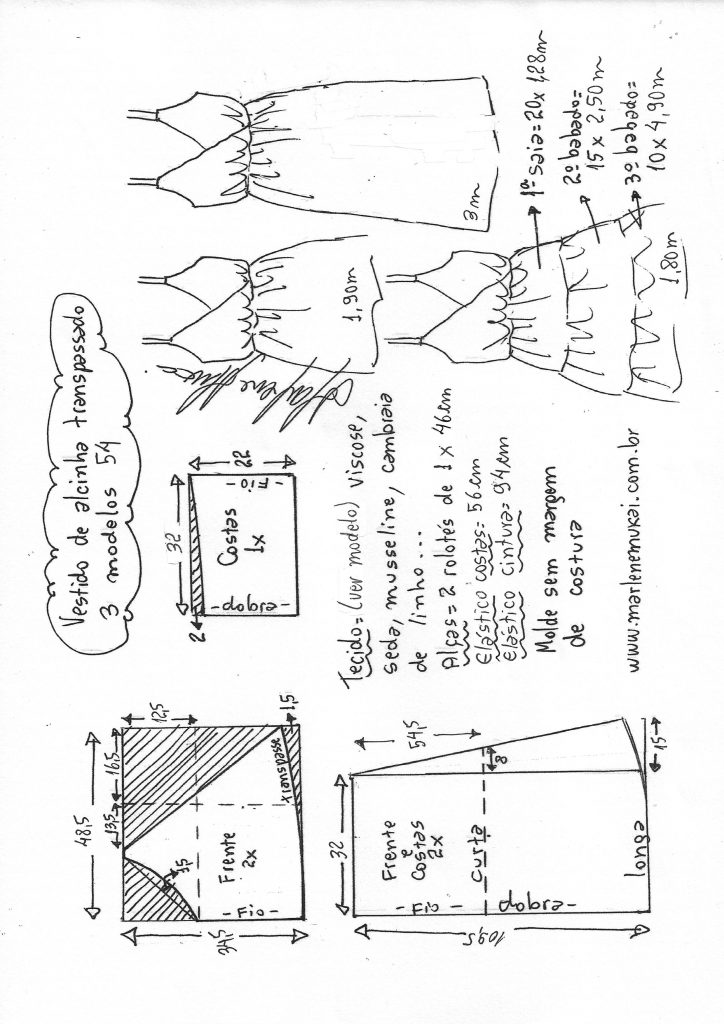 Vestido de alcinha transpassado
3 modelos 54
48,5
13,5
16,5
12,5
1,5
1,5
34,5
Frente
2x
transpasse
- Fio -
32
22
2
Costas
1x
- Fio -
- dobra -
1,90m
3m
1ª saia = 20 x 1,28m
2º babado =
15 x 2,50m
3º babado =
10 x 4,90m
1,80m
32
54,5
8
15
109,5
Frente
e
Costas
2x
curta
longa
- Fio -
dobra -
Tecido = (ver modelo) viscose,
seda, musseline, cambraia
de linho...
Alças = 2 rolotês de 1 x 46cm
Elástico costas = 56cm
Elástico cintura = 94cm
Molde sem margem
de costura
www.marlenemukai.com.br
Marlene Mukai